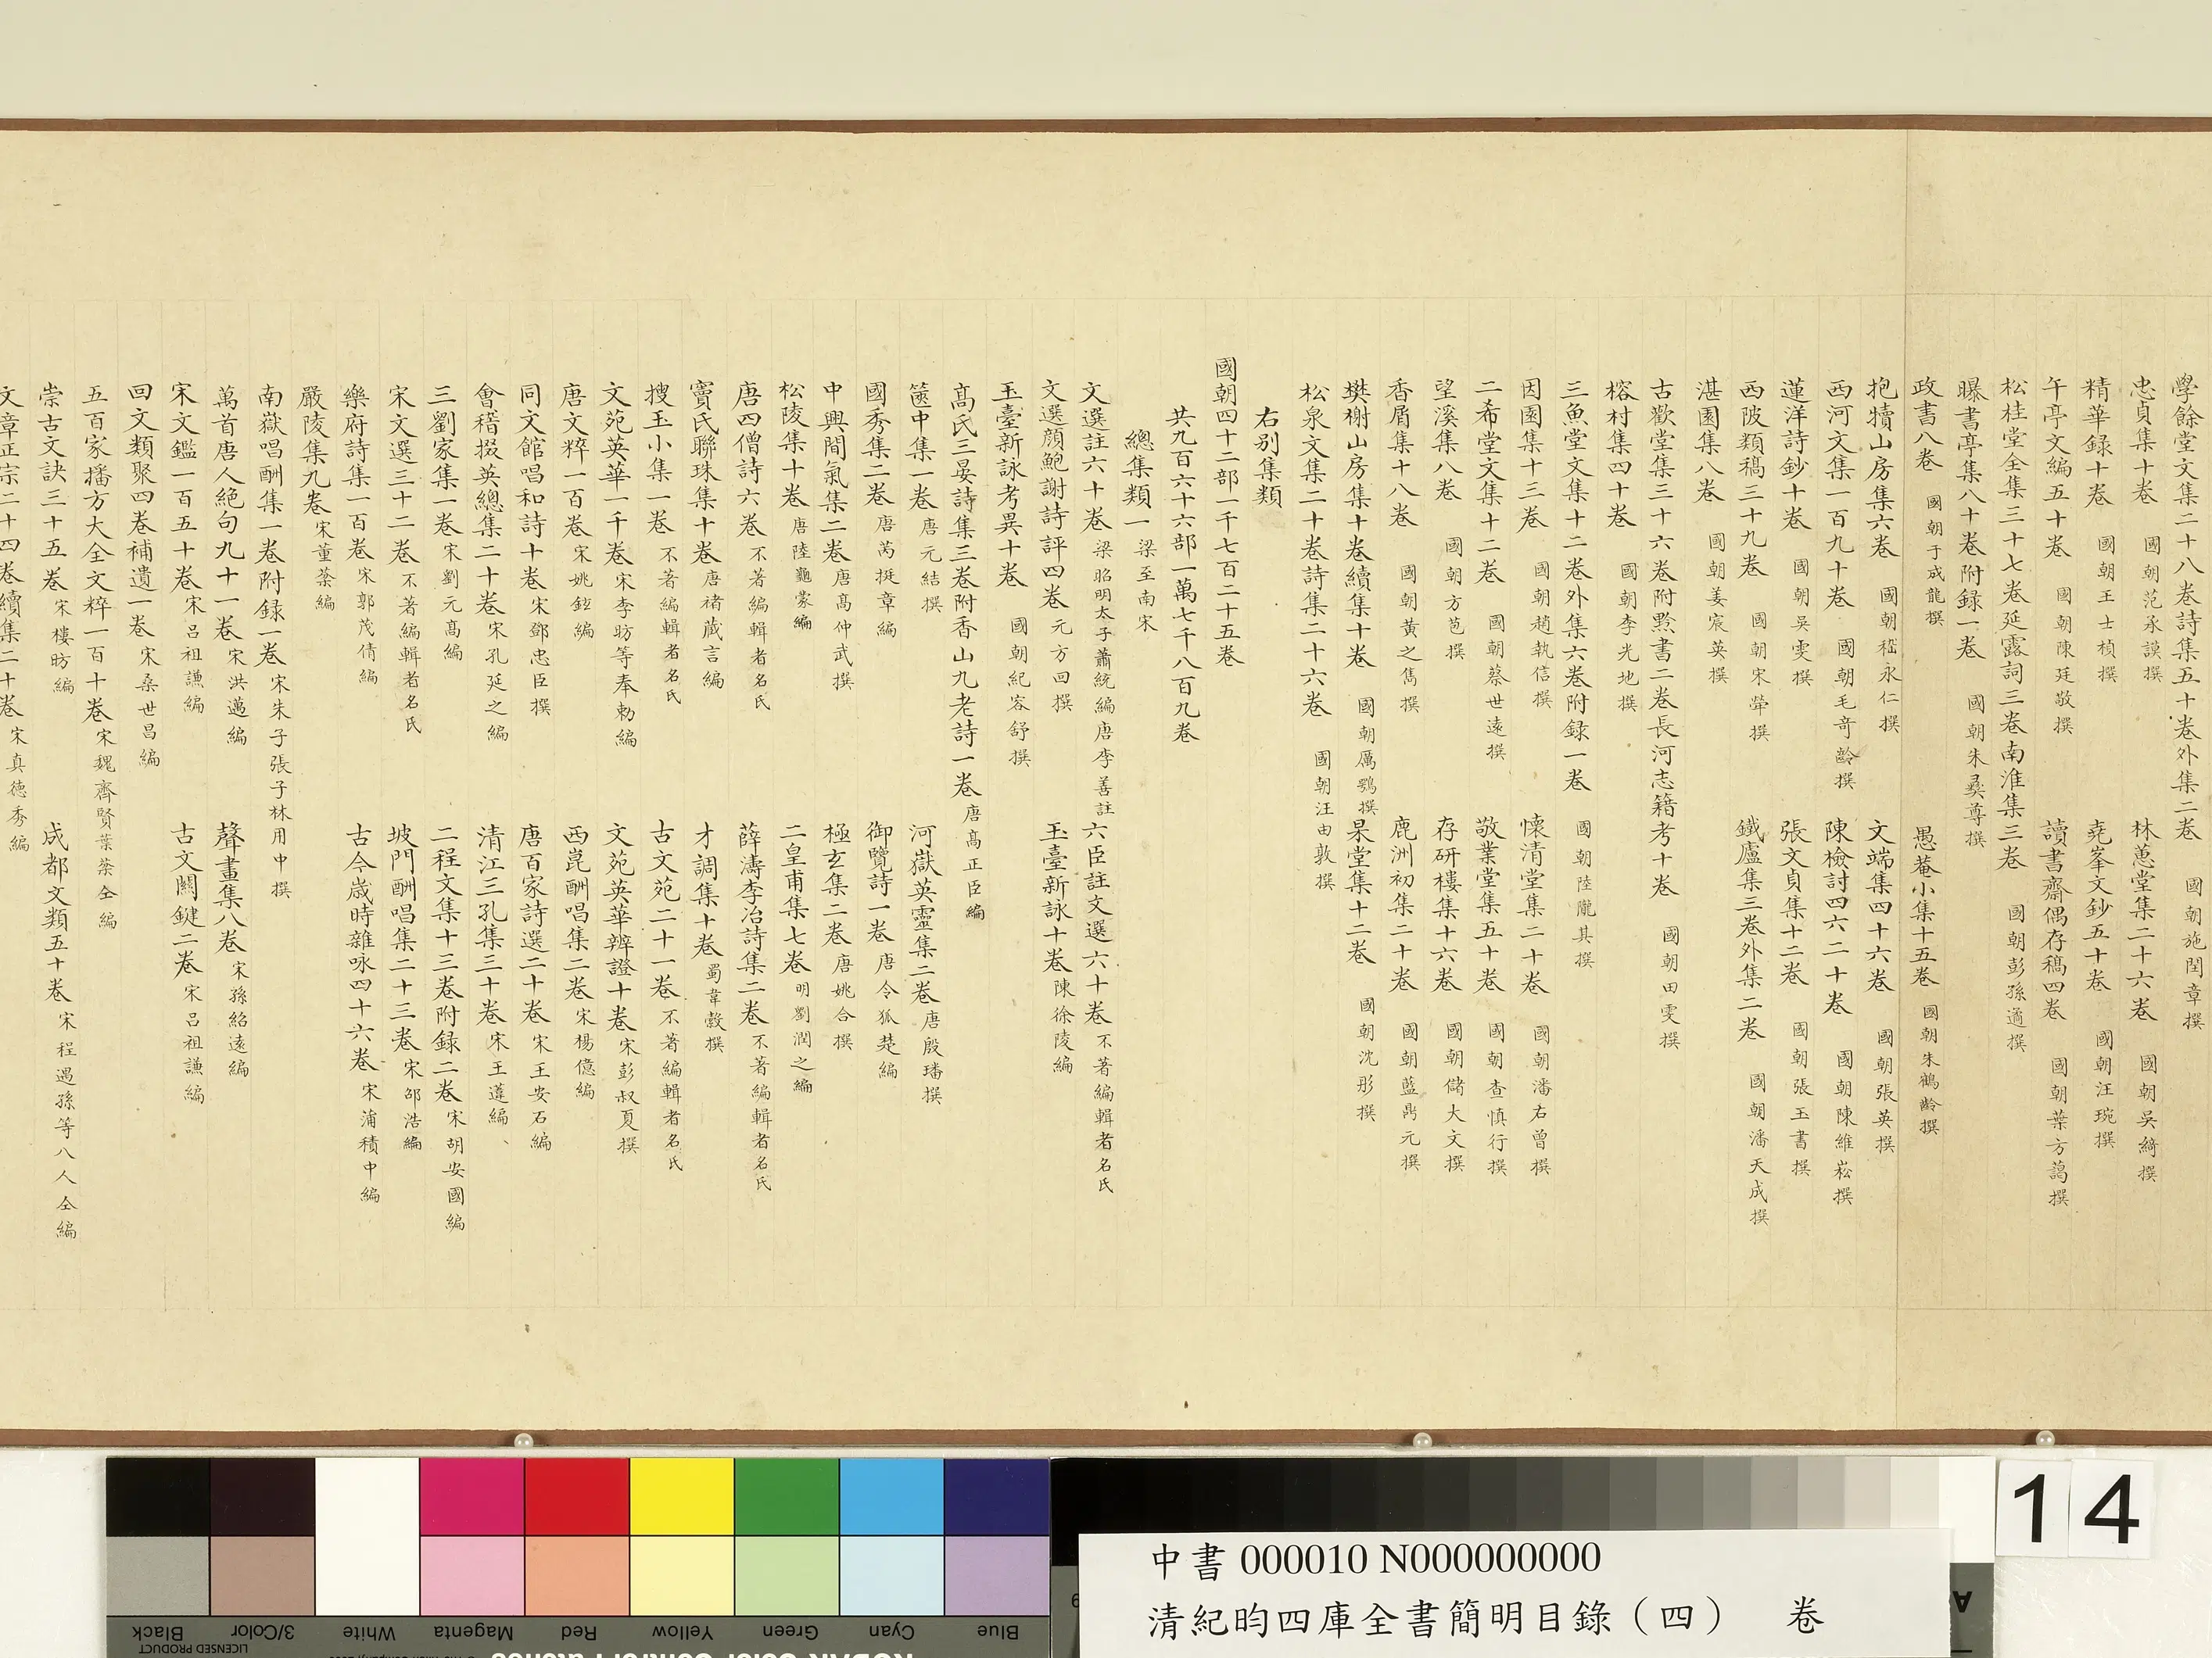 學餘堂文集二十八卷詩集五十卷外集二卷 國朝施閏章撰
忠貞集十卷 國朝范承謨撰 林蕙堂集二十六卷 國朝吳綺撰
精華録十卷 國朝王士禎撰 堯峯文鈔五十卷 國朝汪琬撰
午亭文編五十卷 國朝陳廷敬撰 讀書齋偶存稿四卷 國朝葉方藹撰
松桂堂全集三十七卷延露詞三卷南淮集三卷 國朝彭孫遹撰
曝書亭集八十卷附録一卷 國朝朱彝尊撰
政書八卷 國朝于成龍撰 愚菴小集十五卷 國朝朱鶴齡撰
抱犢山房集六卷 國朝嵇永仁撰 文端集四十六卷 國朝張英撰
西河文集一百九十卷 國朝毛奇齡撰 陳檢討四六二十卷 國朝陳維崧撰
蓮洋詩鈔十卷 國朝吳雯撰 張文貞集十二卷 國朝張玉書撰
西陂類稿三十九卷 國朝宋犖撰 鐵廬集三卷外集二卷 國朝潘天成撰
湛園集八卷 國朝姜宸英撰
古歡堂集三十六卷附黔書二卷長河志籍考十卷 國朝田雯撰
榕村集四十卷 國朝李光地撰
三魚堂文集十二卷外集六卷附録一卷 國朝陸隴其撰
因園集十三卷 國朝趙執信撰 懷清堂集二十卷 國朝潘右曾撰
二希堂文集十二卷 國朝蔡世遠撰 敬業堂集五十卷 國朝查慎行撰
望溪集八卷 國朝方苞撰 存研樓集十六卷 國朝儲大文撰
香屑集十八卷 國朝黃之雋撰 鹿洲初集二十卷 國朝藍鼎元撰
樊榭山房集十卷續集十卷 國朝厲鶚撰 果堂集十二卷 國朝沈彤撰
松泉文集二十卷詩集二十六卷 國朝汪由敦撰
右别集類
國朝四十二部一千七百二十五卷
共九百六十六部一萬七千八百九卷
總集類一 梁至南宋
文選註六十卷 梁昭明太子蕭統編唐李善註 六臣註文選六十卷 不著編輯者名氏
文選顔鮑謝詩評四卷 元方回撰 玉臺新詠十卷 陳徐陵編
玉臺新詠考異十卷 國朝紀容舒撰
髙氏三宴詩集三卷附香山九老詩一卷 唐髙正臣編
篋中集一卷 唐元結撰 河嶽英靈集二卷 唐殷璠撰
國秀集二卷 唐芮挺章編 御覽詩一卷 唐令狐楚編
中興間氣集二卷 唐髙仲武撰 極玄集二卷 唐姚合撰
松陵集十卷 唐陸龜蒙編 二皇甫集七卷 明劉潤之編
唐四僧詩六卷 不著編輯者名氏 薛濤李冶詩集二卷 不著編輯者名氏
竇氏聯珠集十卷 唐禇蔵言編 才調集十卷 蜀韋縠撰
搜玉小集一卷 不著編輯者名氏 古文苑二十一卷 不著編輯者名氏
文苑英華一千卷 宋李昉等奉勅編 文苑英華辨證十卷 宋彭叔夏撰
唐文粹一百卷 宋姚鉉編 西崑酬唱集二卷 宋楊億編
同文館唱和詩十卷 宋鄧忠臣撰 唐百家詩選二十卷 宋王安石編
會稽掇英總集二十卷 宋孔延之編 清江三孔集三十卷 宋王蓬編
三劉家集一卷 宋劉元髙編 二程文集十三卷附録二卷 宋胡安國編
宋文選三十二卷 不著編輯者名氏 坡門酬唱集二十三卷 宋邵浩編
樂府詩集一百卷 宋郭茂倩編 古今歳時雜咏四十六卷 宋蒲積中編
嚴陵集九卷 宋董棻編
南嶽唱酬集一卷附録一卷 宋朱子張子林用中撰
萬首唐人絶句九十一卷 宋洪邁編 聲畫集八卷 宋孫紹逺編
宋文鑑一百五十卷 宋呂祖謙編 古文闗鍵二卷 宋呂祖謙編
回文類聚四卷補遺一卷 宋桑世昌編
五百家播方大全文粹一百十卷 宋魏齊賢葉棻仝編
崇古文訣三十五卷 宋樓昉編 成都文類五十卷 宋程遇孫等八人仝編
文章正宗二十四卷續集二十卷 宋真徳秀編
14
中書 000010 N000000000
清紀昀四庫全書簡明目錄（四） 卷
Black 3/Color White Magenta Red Yellow Green Cyan Blue
LICENSED PRODUCT
A